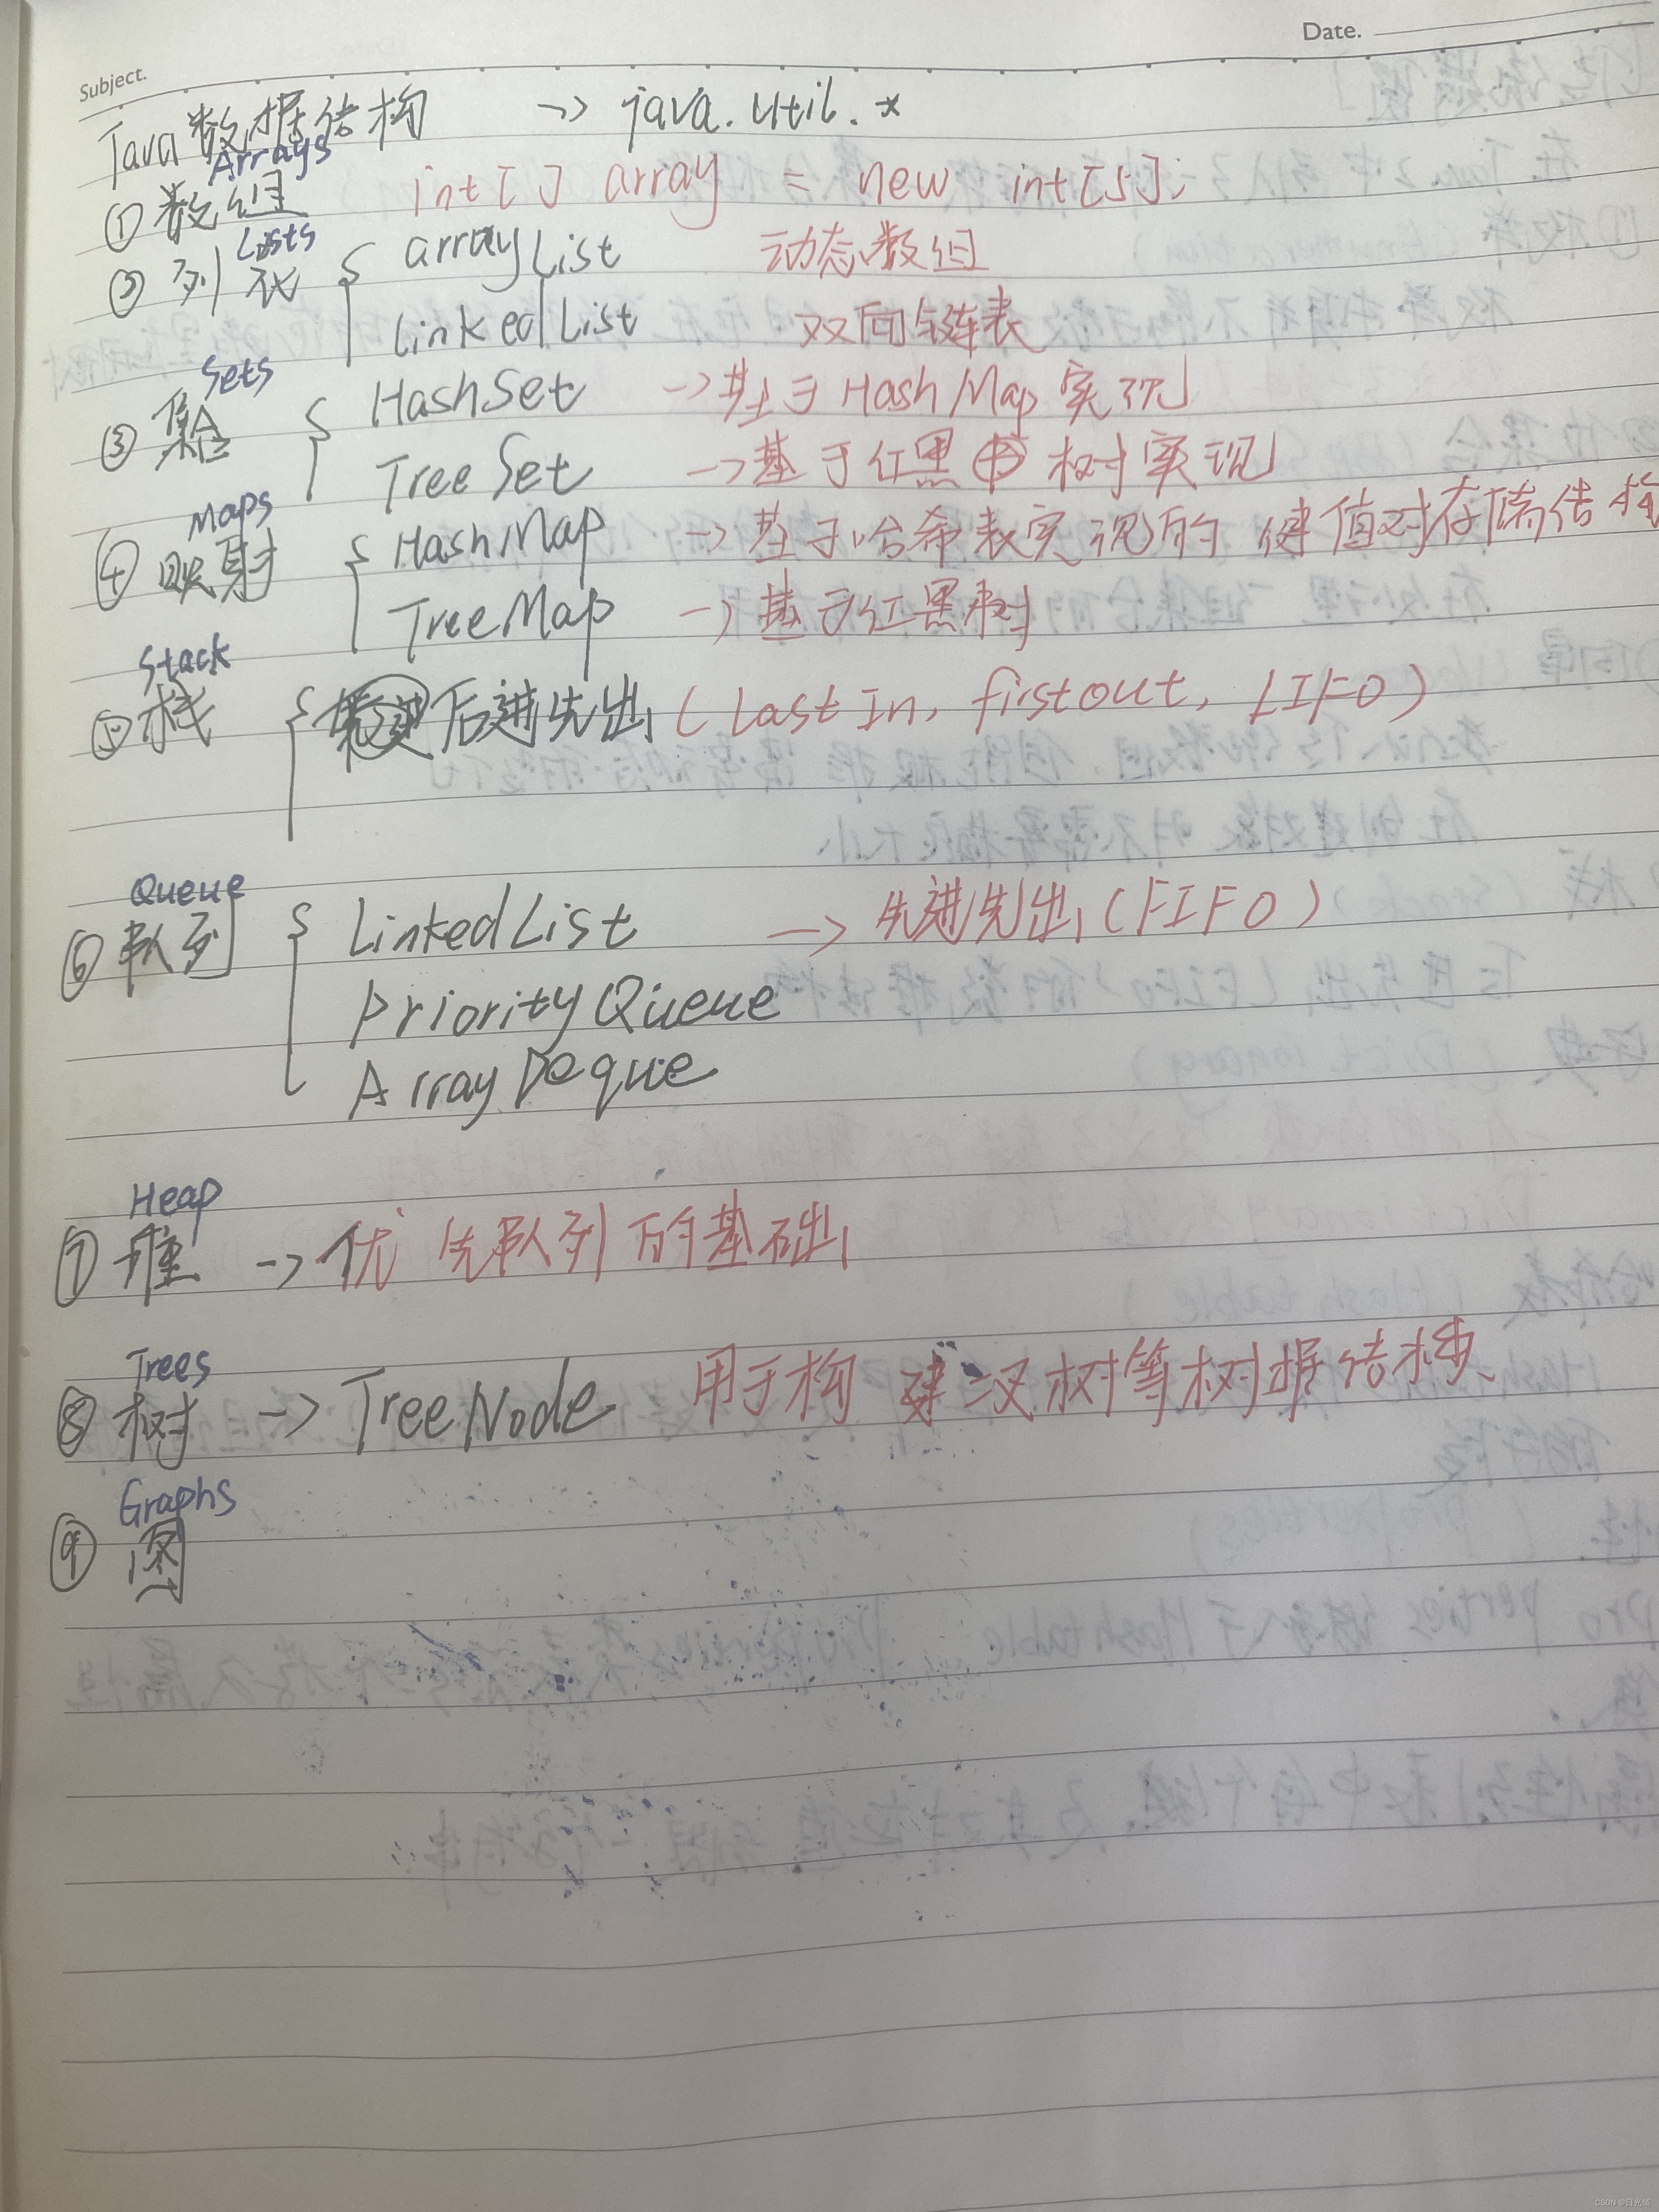 Date.
Subject.
Java数据结构 -> java.util.*
Arrays
①数组 int[] array = new int[5];
Lists
②列表 { arrayList 动态数组
LinkedList 双向链表
Sets
③集合 { HashSet ->基于HashMap实现
TreeSet ->基于红黑树实现
Maps
④映射 { HashMap ->基于哈希表实现的键值对存储结构
TreeMap ->基于红黑树
Stack
⑤栈 { 后进先出(Last In, first out, LIFO)
Queue
⑥队列 { LinkedList -> 先进先出(FIFO)
PriorityQueue
ArrayDeque
Heap
⑦堆 -> 优先队列的基础
Trees
⑧树 -> TreeNode 用于构建二叉树等树据结构
Graphs
⑨图
CSDN @日光倾